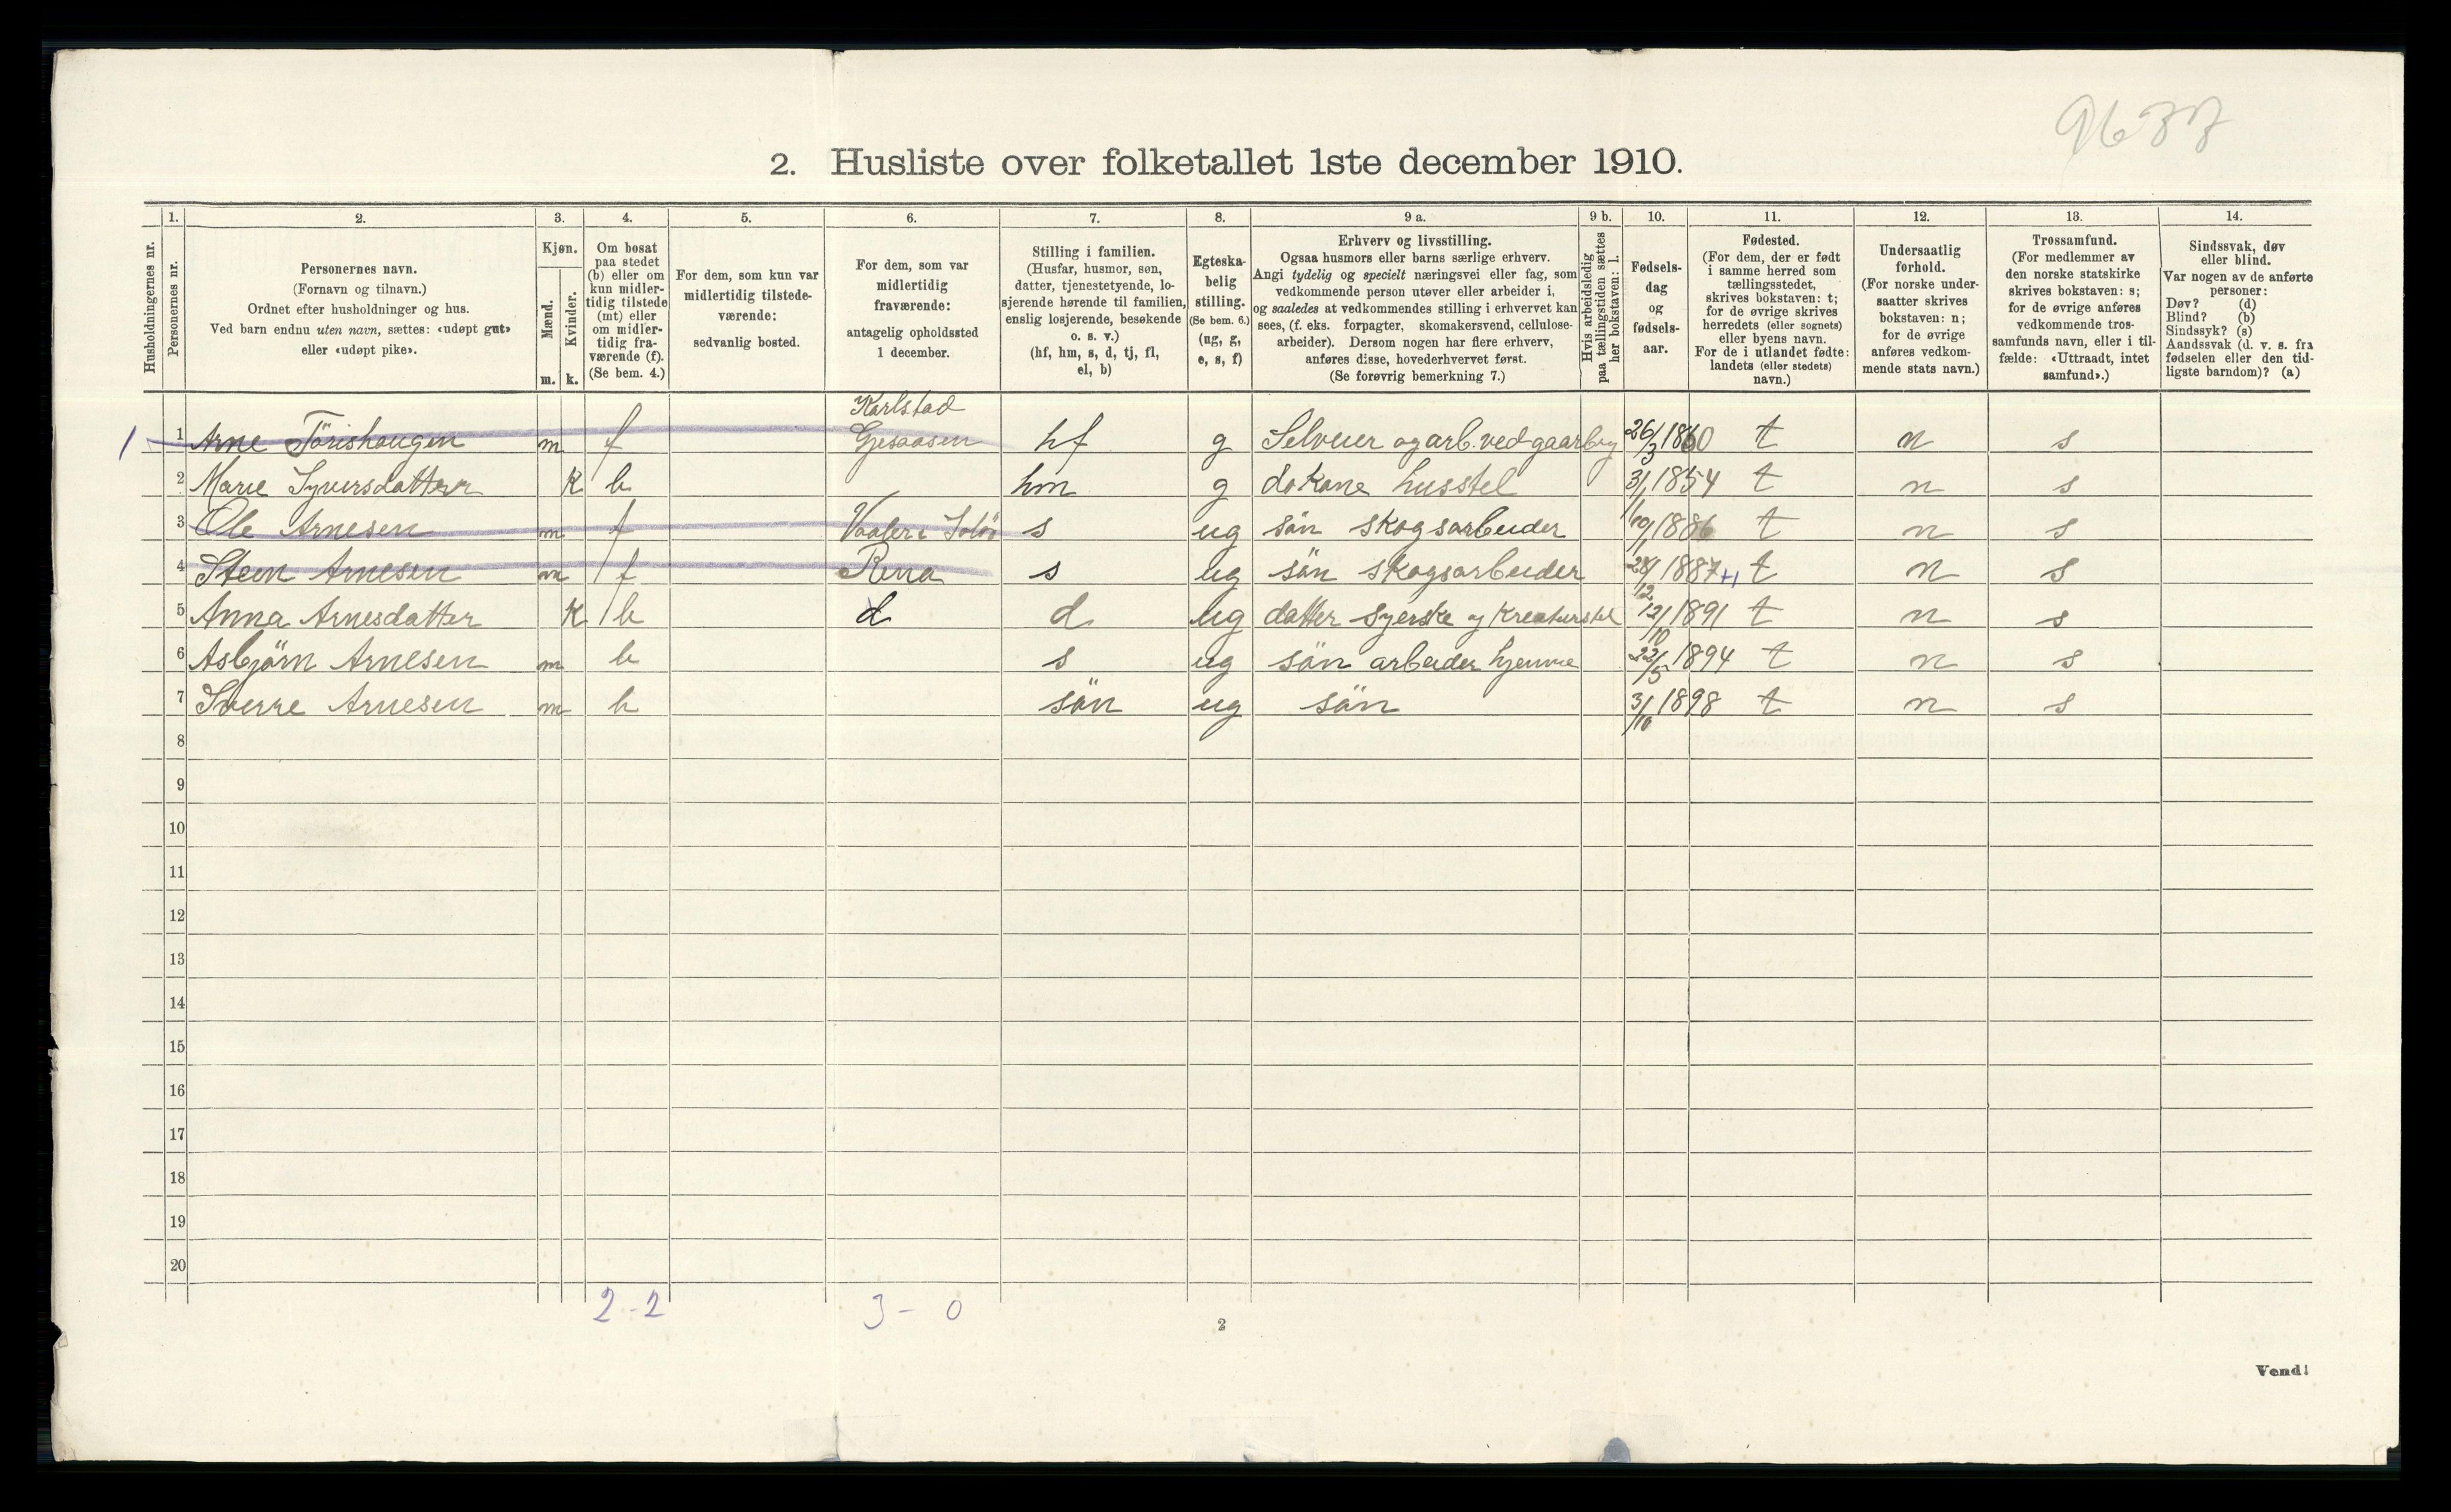 9677
2. Husliste over folketallet 1ste december 1910.
1. 2. 3. 4. 5. 6. 7. 8. 9 a. 9 b. 10. 11. 12. 13. 14.
Husholdningernes nr.
Personernes nr.
Personernes navn.
(Fornavn og tilnavn.)
Ordnet efter husholdninger og hus.
Ved barn endnu uten navn, sættes: «udøpt gut»
eller «udøpt pike».
Kjøn.
Mænd.
Kvinder.
m. k.
Om bosat
paa stedet
(b) eller om
kun midler-
tidig tilstede
(mt) eller
om midler-
tidig fra-
værende (f).
(Se bem. 4.)
For dem, som kun var
midlertidig tilstede-
værende:
sedvanlig bosted.
For dem, som var
midlertidig
fraværende:
antagelig opholdssted
1 december.
Stilling i familien.
(Husfar, husmor, søn,
datter, tjenestetyende, lo-
sjerende hørende til familien,
enslig losjerende, besøkende
o. s. v.)
(hf, hm, s, d, tj, fl,
el, b)
Egteska-
belig
stilling.
(Se bem. 6.)
(ug, g,
e, s, f)
Erhverv og livsstilling.
Ogsaa husmors eller barns særlige erhverv.
Angi tydelig og specielt næringsvei eller fag, som
vedkommende person utøver eller arbeider i,
og saaledes at vedkommendes stilling i erhvervet kan
sees, (f. eks. forpagter, skomakersvend, cellulose-
arbeider). Dersom nogen har flere erhverv,
anføres disse, hovederhvervet først.
(Se forøvrig bemerkning 7.)
Hvis arbeidsledig
paa tællingstiden sættes
her bokstaven: l.
Fødsels-
dag
og
fødsels-
aar.
Fødested.
(For dem, der er født
i samme herred som
tællingsstedet,
skrives bokstaven: t;
for de øvrige skrives
herredets (eller sognets)
eller byens navn.
For de i utlandet fødte:
landets (eller stedets)
navn.)
Undersaatlig
forhold.
(For norske under-
saatter skrives
bokstaven: n;
for de øvrige
anføres vedkom-
mende stats navn.)
Trossamfund.
(For medlemmer av
den norske statskirke
skrives bokstaven: s;
for de øvrige anføres
vedkommende tros-
samfunds navn, eller i til-
fælde: «Uttraadt, intet
samfund».)
Sindssvak, døv
eller blind.
Var nogen av de anførte
personer:
Døv? (d)
Blind? (b)
Sindssyk? (s)
Aandssvak (d. v. s. fra
fødselen eller den tid-
ligste barndom)? (a)
Karlstad
1 1 Arne Törishaugen m f Gjesaasen hf g Selveier og arb. ved gaarbrug 26/3 1860 t n s
2 Marie Syversdatter k b hm g do Kone husstel 3/1 1854 t n s
3 Ole Arnesen m f Vaaler i Solör s ug sön skogsarbeider 1886 t n s
4 Steen Arnesen m f Rena s ug sön skogsarbeider 28/12 1887 +1 t n s
5 Anna Arnesdatter k b d d ug datter syerske og kreaturstel 12/10 1891 t n s
6 Asbjörn Arnesen m b s ug sön arbeider hjemme 22/5 1894 t n s
7 Sverre Arnesen m b sön ug sön 3/10 1898 t n s
8
9
10
11
12
13
14
15
16
17
18
19
20
2 - 2 3 - 0
2
Vend!